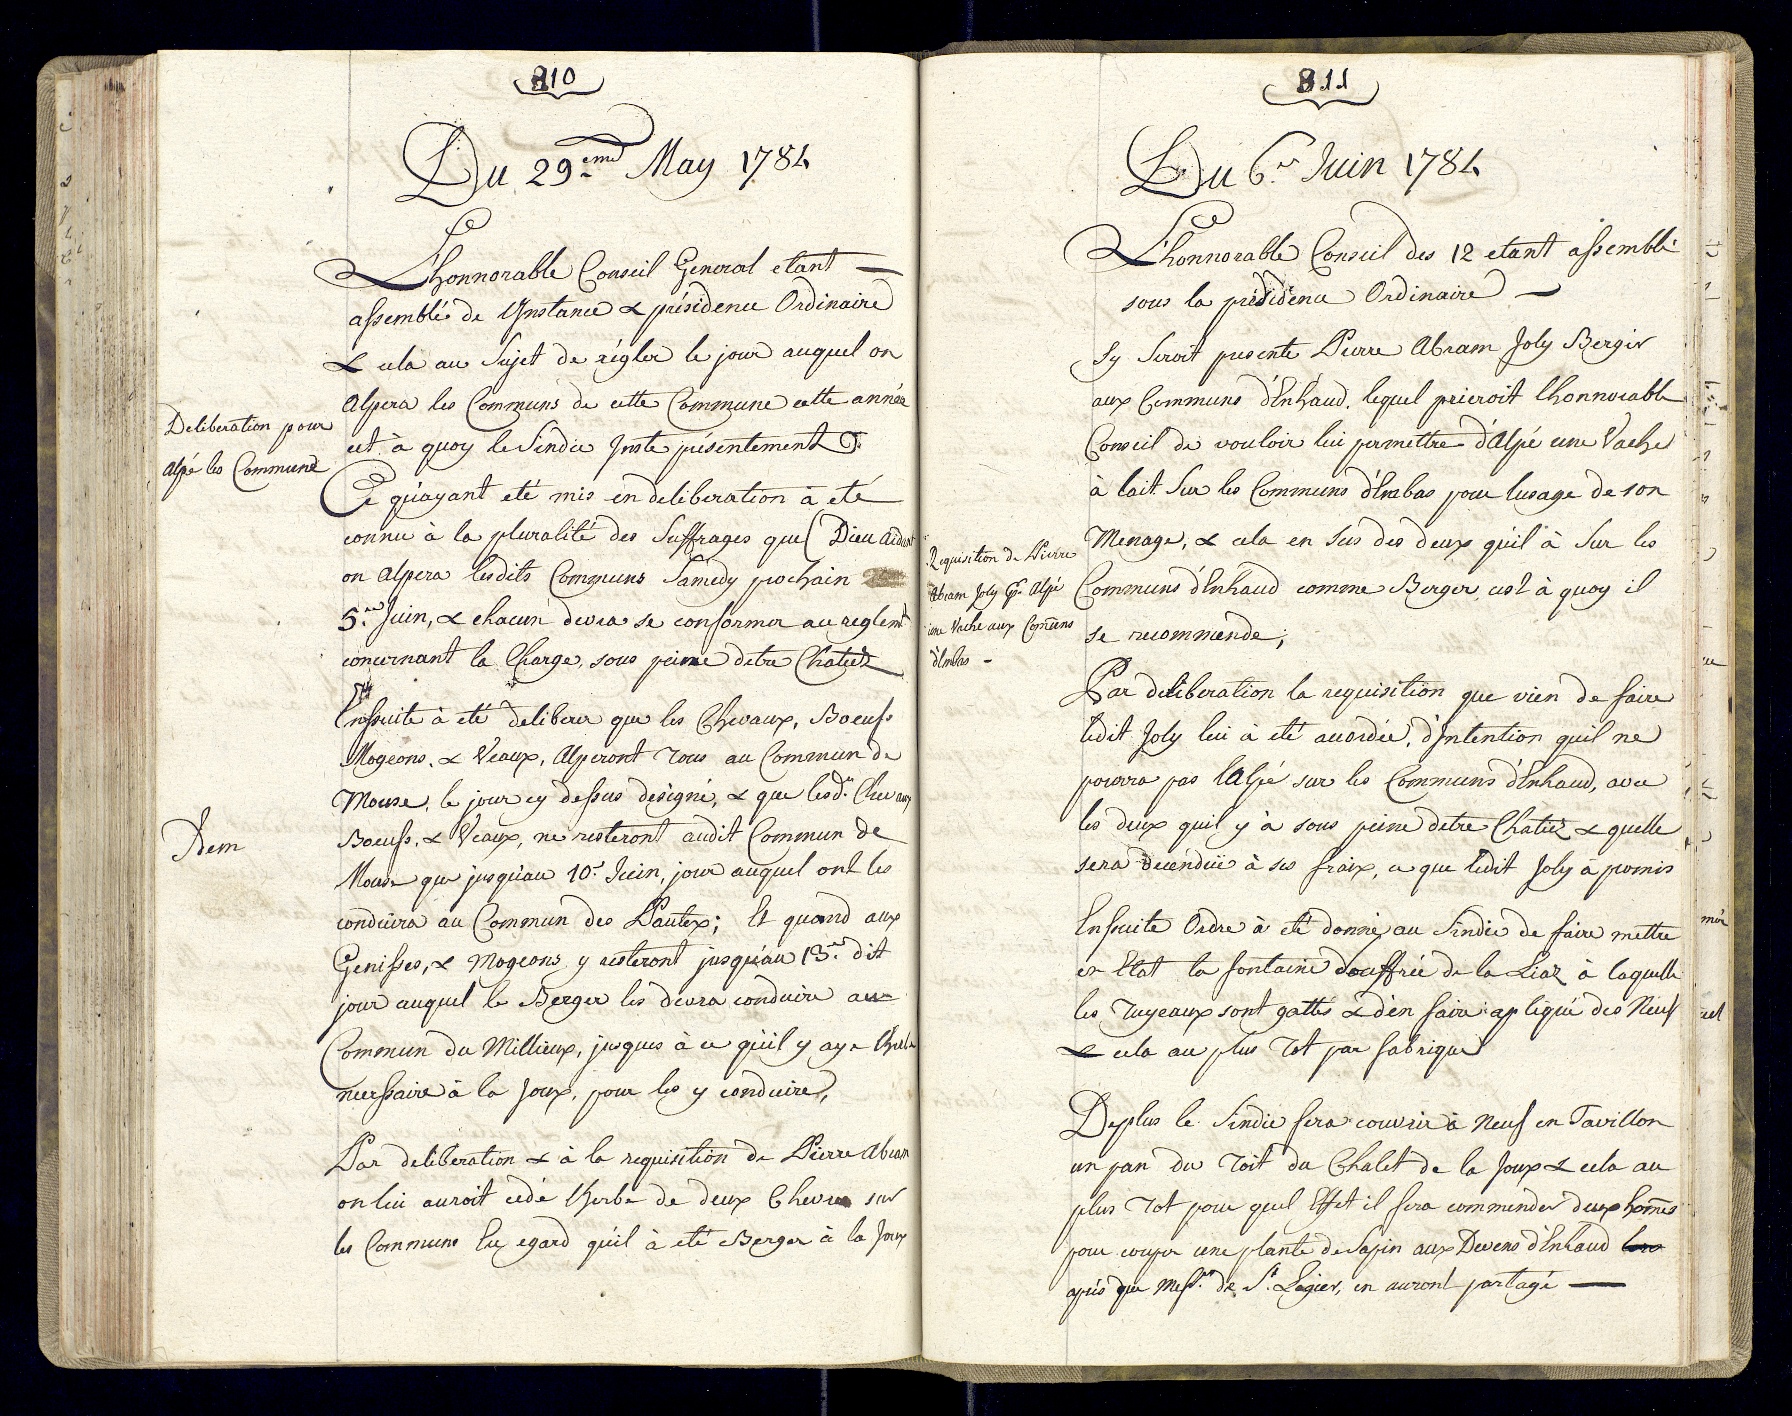 810
Du 29.eme May 1784
L'honnorable Conseil General etant —
assemblé de l'Instance & présidence Ordinaire
& cela au Sujet de régler le jour auquel on
Alpera les Communs de cette Commune cette année
Deliberation pour
alpé les Commune
cet à quoy le Sindic Inste présentement
Ce qu'ayant eté mis en deliberation à eté
connu à la pluralité des Suffrages que (Dieu Aidant
on alpera lesdits Communs Samedy prochain
5.e Juin, & chacun devra se conformer au reglemt
concernant la Charge, sous peine detre Chatiéz
Ensuite à eté deliberer que les Chevaux, Boeufs
Mogeons, & Veaux, Alperont Tous au Commun de
Mouse, le jour cy dessus designé, & que lesd.ts Chevaux
Item
Boeufs, & Veaux, ne resteront audit Commun de
Mouse que jusqu'au 10.e Juin, jour auquel ont les
conduira au Commun des Pautex; Et quand aux
Genisses, & Mogeons y resteront jusqu'au 13.e dit
jour auquel le Berger les devra conduire au
Commun du Millieux, jusques à ce qu'il y aye l'herbe
necessaire à la Joux, pour les y conduire,
Par deliberation & à la requisition de Pierre Abram
on lui auroit cedé l'herbe de deux Chevres sur
les Communs Eu egard qu'il à eté Berger à la Joux
811
Du 6.e Juin 1784
L'honnorable Conseil des 12 etant assemblé
sous la présidence Ordinaire —
Sy Seroit presenté Pierre Abram Joly Berger
aux Communs d'Enhaud, lequel prieroit lhonnorable
Conseil de vouloir lui permettre d'Alpé une Vache
à lait Sur les Communs d'Embas pour lusage de son
Requisition de Pierre
Abram Joly pr Alpé
une Vache aux Comuns
d'Embas -
Menage, & cela en Sus des deux qu'il à Sur les
Communs d'Enhaud comme Berger, cest à quoy il
se recommende;
Par deliberation la requisition que vien de faire
ledit Joly lui à eté accordée, d'Intention quil ne
pourra pas l'Alpé sur les Communs d'Enhaud, avec
les deux quil y à sous peine detre Chatiéz & quelle
sera decendüe à ses fraix, ce que ledit Joly à promis
Ensuite Ordre à eté donné au Sindic de faire mettre
en Etat la fontaine de la Liaz à laquelle
les Tuyeaux sont gattés & d'en faire apliqué des Neuf
& cela au plus Tot par fabrique
Deplus le Sindic fera couvrir à Neuf en Tavillon
un pan du Toit du Chalet de la Joux & cela au
plus Tot pour quel Effet il fera commender deux homes
pour couper une plante de Sapin aux Devens d'Enhaud
après que Mess.rs de St. Legier, en auront partagé —